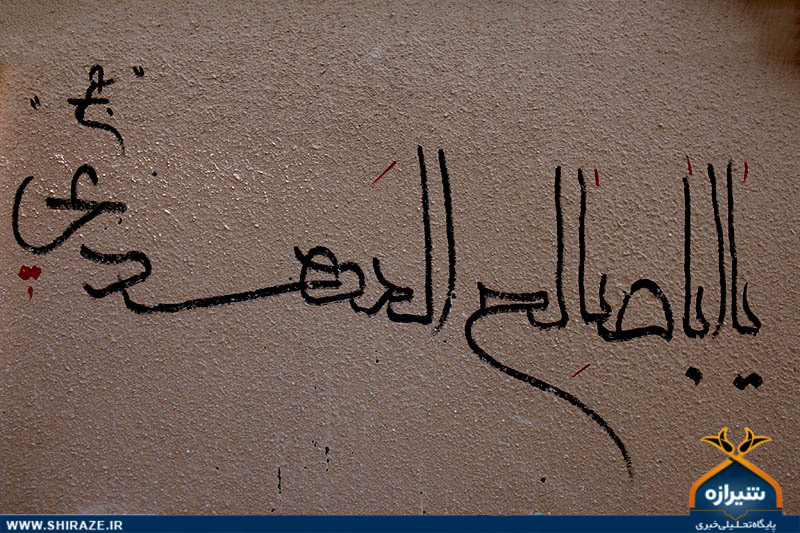 یا اباصالح المهدی
"عج"
شیرازه
پایگاه تحلیلی خبری
WWW.SHIRAZE.IR